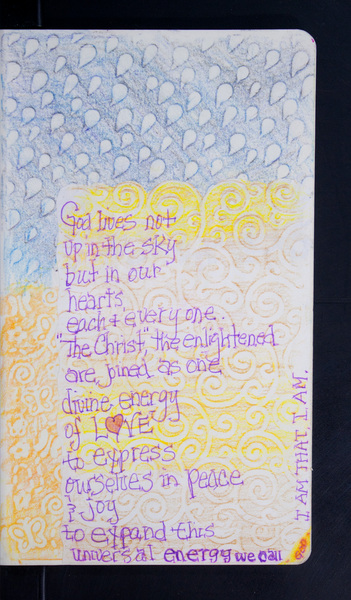 God lives not
up in the sky
but in our
hearts
each + every one..
"The Christ", the enlightened
are joined as one
divine energy
of LOVE
to express
ourselves in peace
& joy
to expand this
universal energy we call
GOD
I AM THAT, I AM.